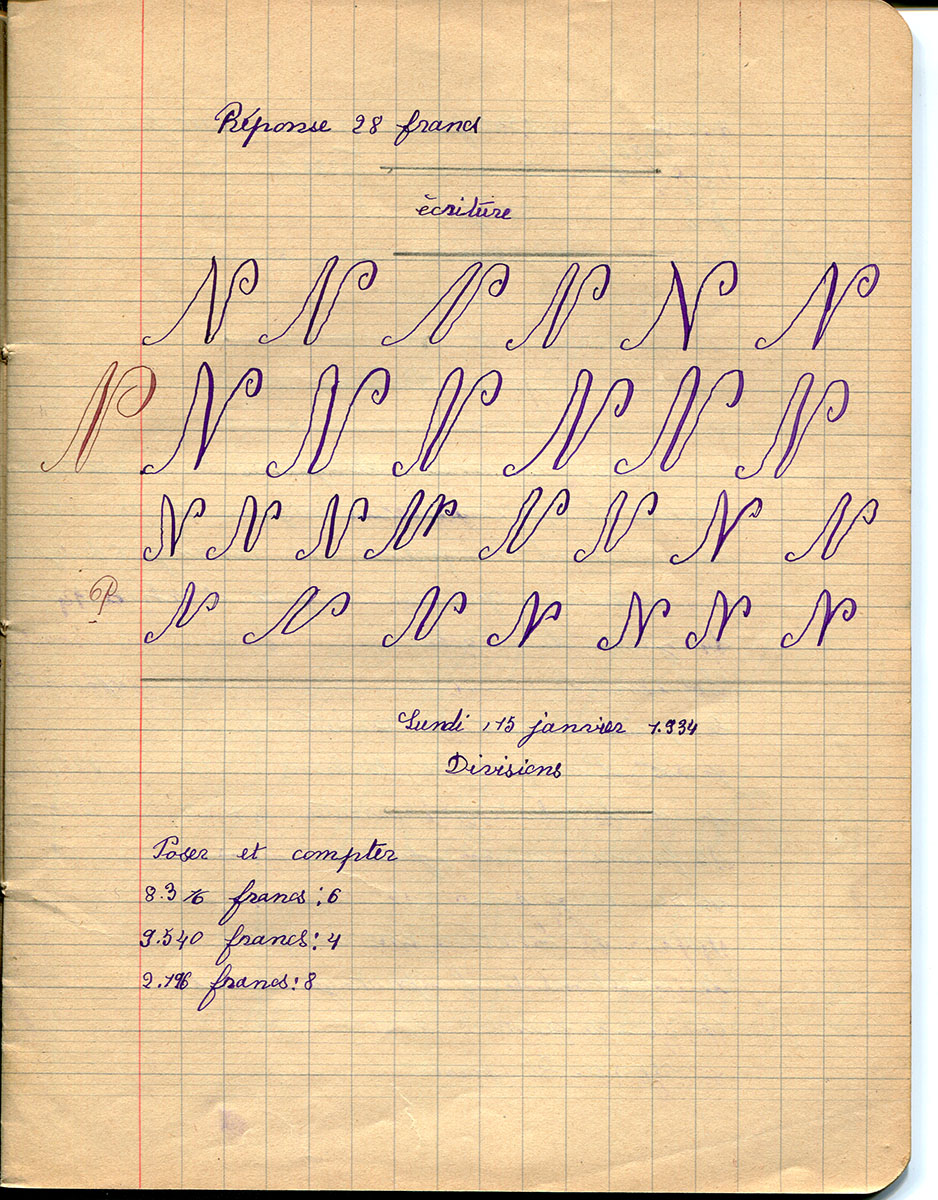 Réponse 28 francs
écriture
N N N N N N
N N N N N N N
N N N N N N N N
N N N N N N N
Lundi , 15 janvier 1.934
Divisions
Poser et compter
francs : 6
9.540 francs : 4
francs : 8